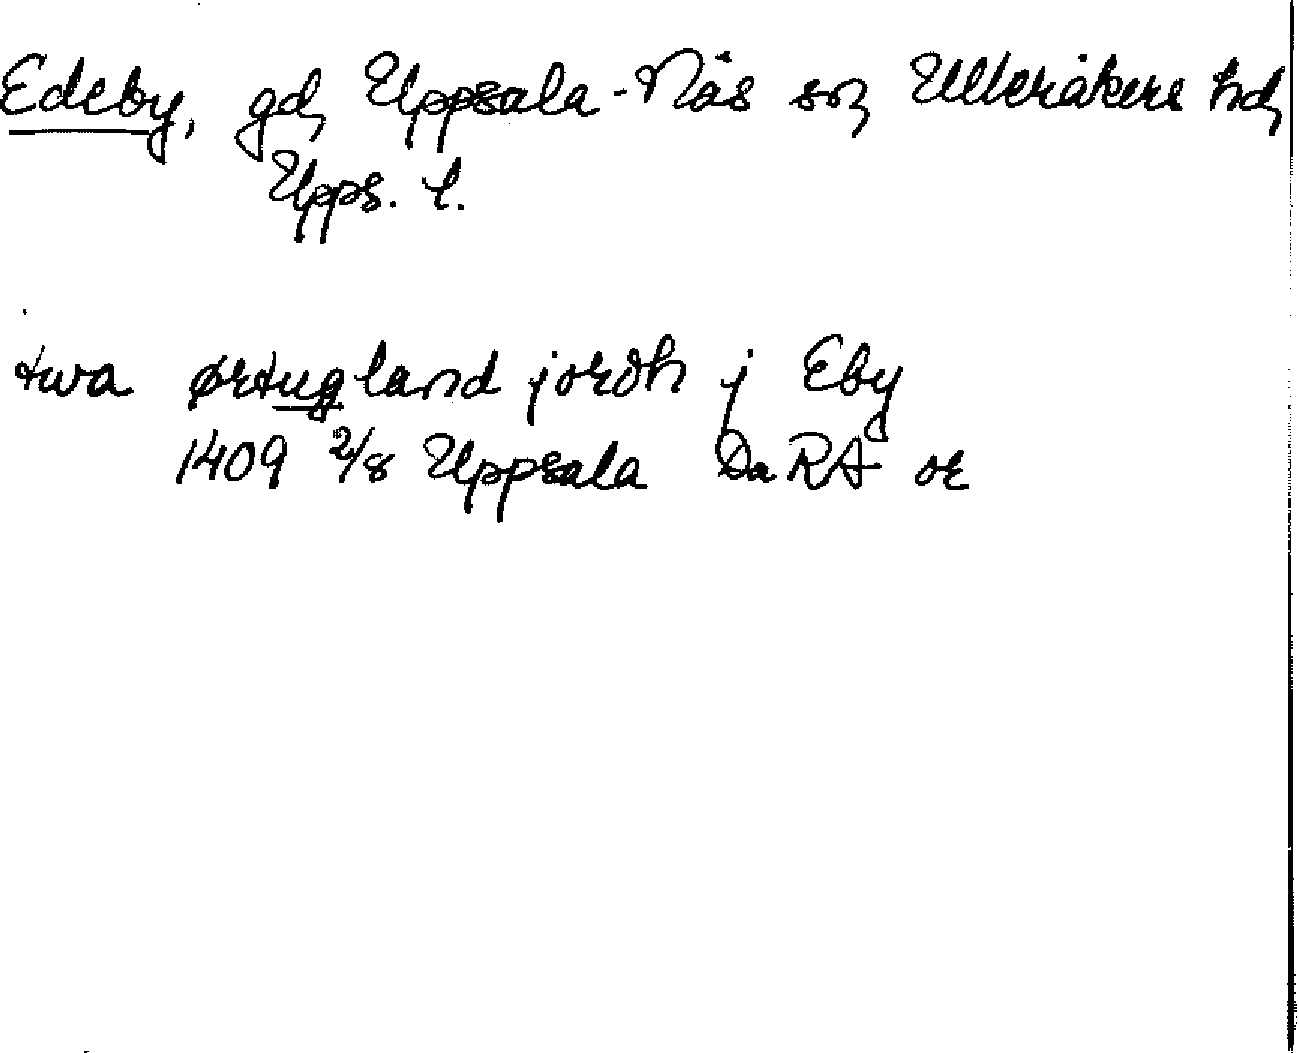 Edeby, gd, Uppsala-Näs sn, Ulleråkers hd,
Upps. l.
twa ørtugland jordh j Eby
1409 2/8 Uppsala Da RA or